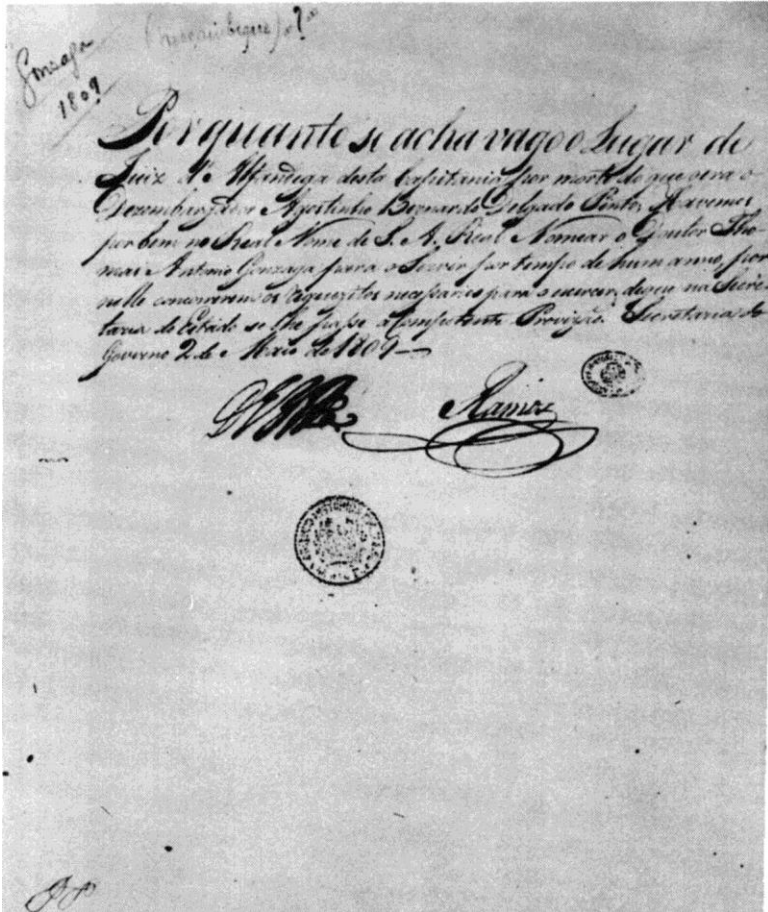 Gonzaga
1809
Moçambique
Porquanto se acha vago o Lugar de
Juiz d'Alfandega desta Capitania, por morte do que era o
Dezembargador Agostinho Bernardo Delgado Pinto, Havemos
por bem no Real Nome de S. A. Real Nomear o Doutor Tho-
maz Antonio Gonzaga para o Servir por tempo de hum anno, por
nelle concorrerem os requezitos necessarios para o exercer, de que na Secre-
taria do Estado se lhe passe a competente Provizão. Secretaria do
Governo 2 de Maio de 1809
Ramos